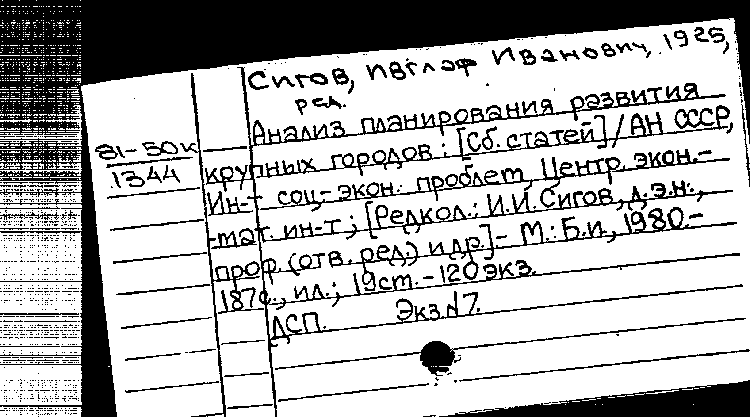 Сигов, Ивглаф Иванович, 1925,
ред.
Анализ планирования развития
81-50к
1344
крупных городов: [Сб. статей] / АН СССР,
Ин-т соц.-экон. проблем, Центр. экон.-
-мат. ин-т; [Редкол.: И.И. Сигов, д.э.н.,
проф. (отв. ред.) и др.].- М.: Б.и., 1980.-
187с., ил.; 19см. - 120экз.
ДСП. Экз.N7.